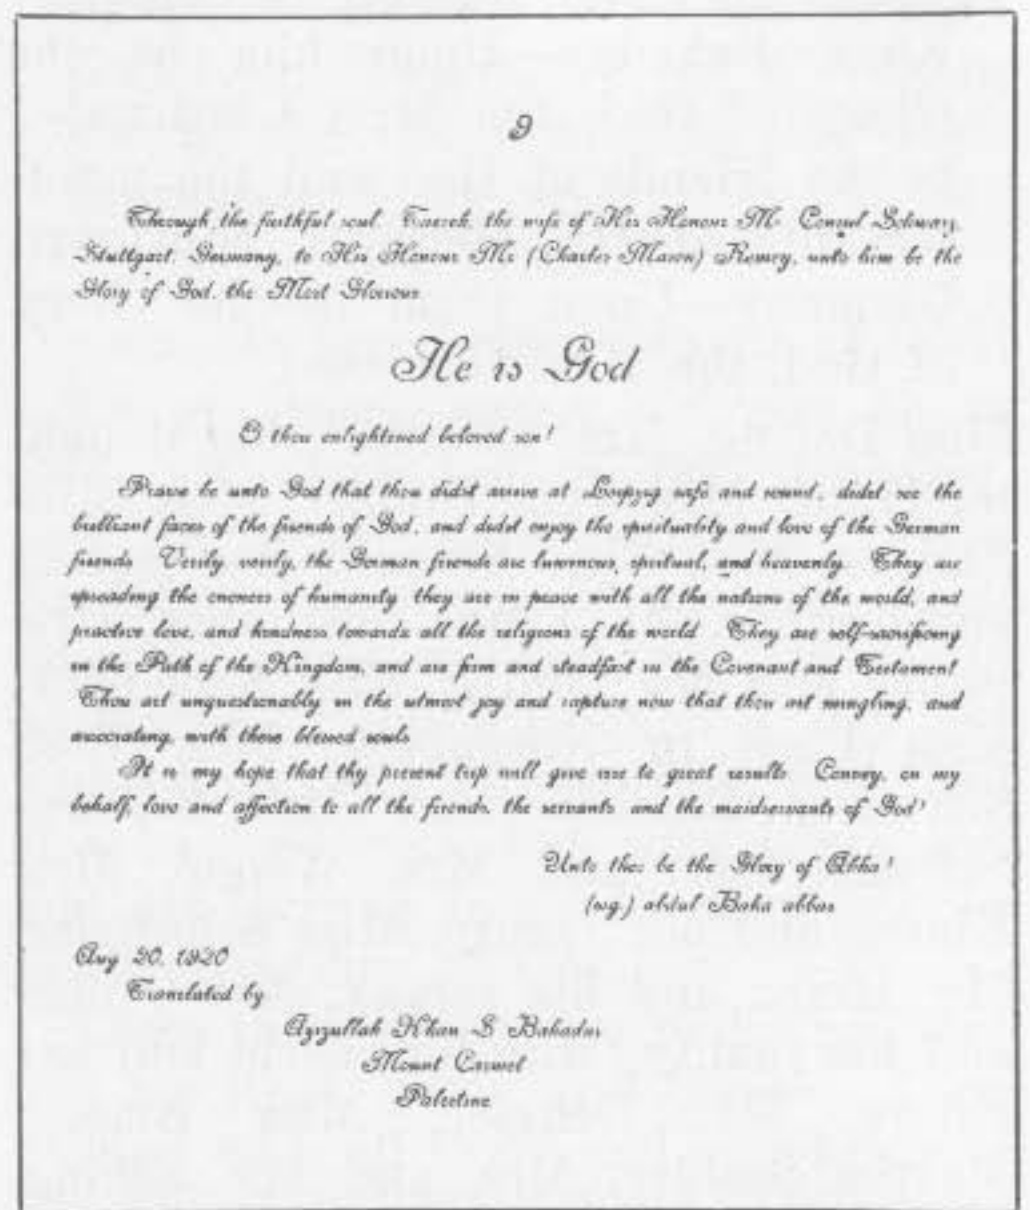 9
Through the faithful soul, Taereh, the wife of His Honour Mr. Consul Schwarz,
Stuttgart, Germany, to His Honour Mr. (Charles Mason) Remey, unto him be the
Glory of God, the Most Glorious.
He is God
O thou enlightened beloved son!
Praise be unto God that thou didst arrive at Leipzig safe and sound, didst see the
brilliant faces of the friends of God, and didst enjoy the spirituality and love of the German
friends. Verily, verily, the German friends are luminous, spiritual, and heavenly. They are
spreading the oneness of humanity, they are in peace with all the nations of the world, and
practise love, and kindness towards all the religions of the world. They are self-sacrificing
in the Path of the Kingdom, and are firm and steadfast in the Covenant and Testament!
Thou art unquestionably in the utmost joy and rapture now that thou art mingling, and
associating, with these blessed souls.
It is my hope that thy present trip will give rise to great results. Convey, on my
behalf, love and affection to all the friends, the servants and the maidservants of God!
Unto thee be the Glory of Abha!
(sig.) abdul Baha abbas
Aug 20, 1920
Translated by
Azizullah Khan S Bahadur
Mount Carmel
Palestine